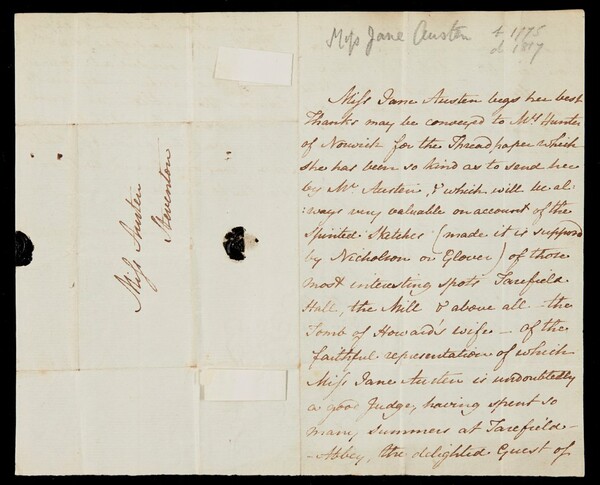 Miss Austen
Steventon
Miss Jane Austen b 1775
d 1817
Miss Jane Austen begs her best
Thanks may be conveyed to Mrs Hunter
of Norwich for the Threadpaper which
she has been so kind as to send her
by Mr Austen, & which will be al-
:ways very valuable on account of the
spirited Sketches (made it is supposed
by Nicholson or Glover) of those
most interesting spots Tarefield
Hall, the Mill & above all the
Tomb of Howard's wife - of the
faithful representation of which
Miss Jane Austen is undoubtedly
a good Judge, having spent so
many summers at Tarefield-
-Abbey, the delighted Guest of